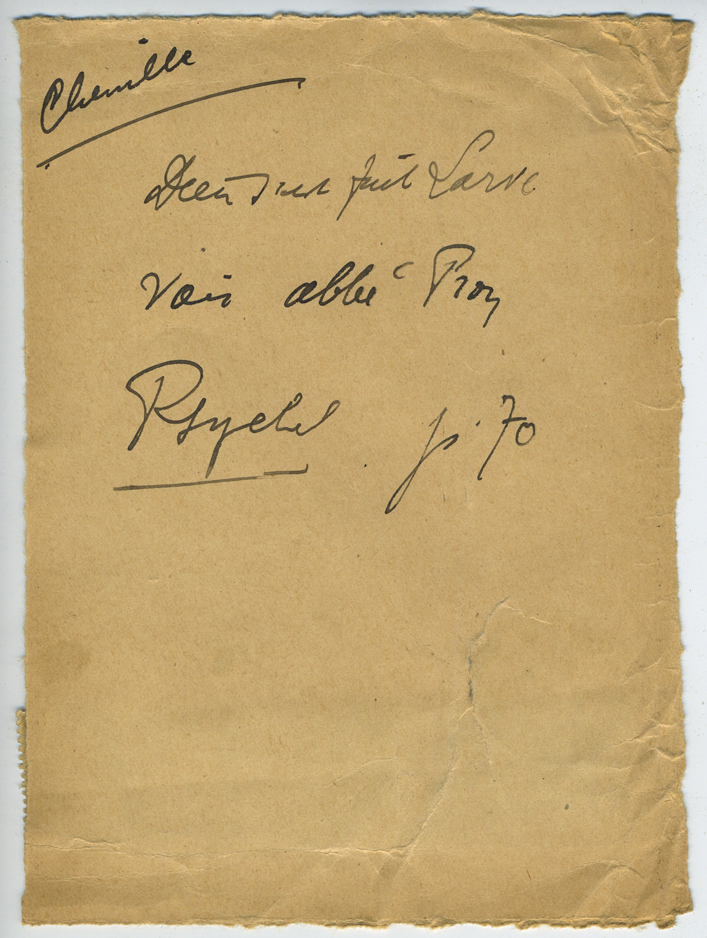 Chenille
Dieu s'est fait Larve
Voir abbé Pron
Psyché p. 70